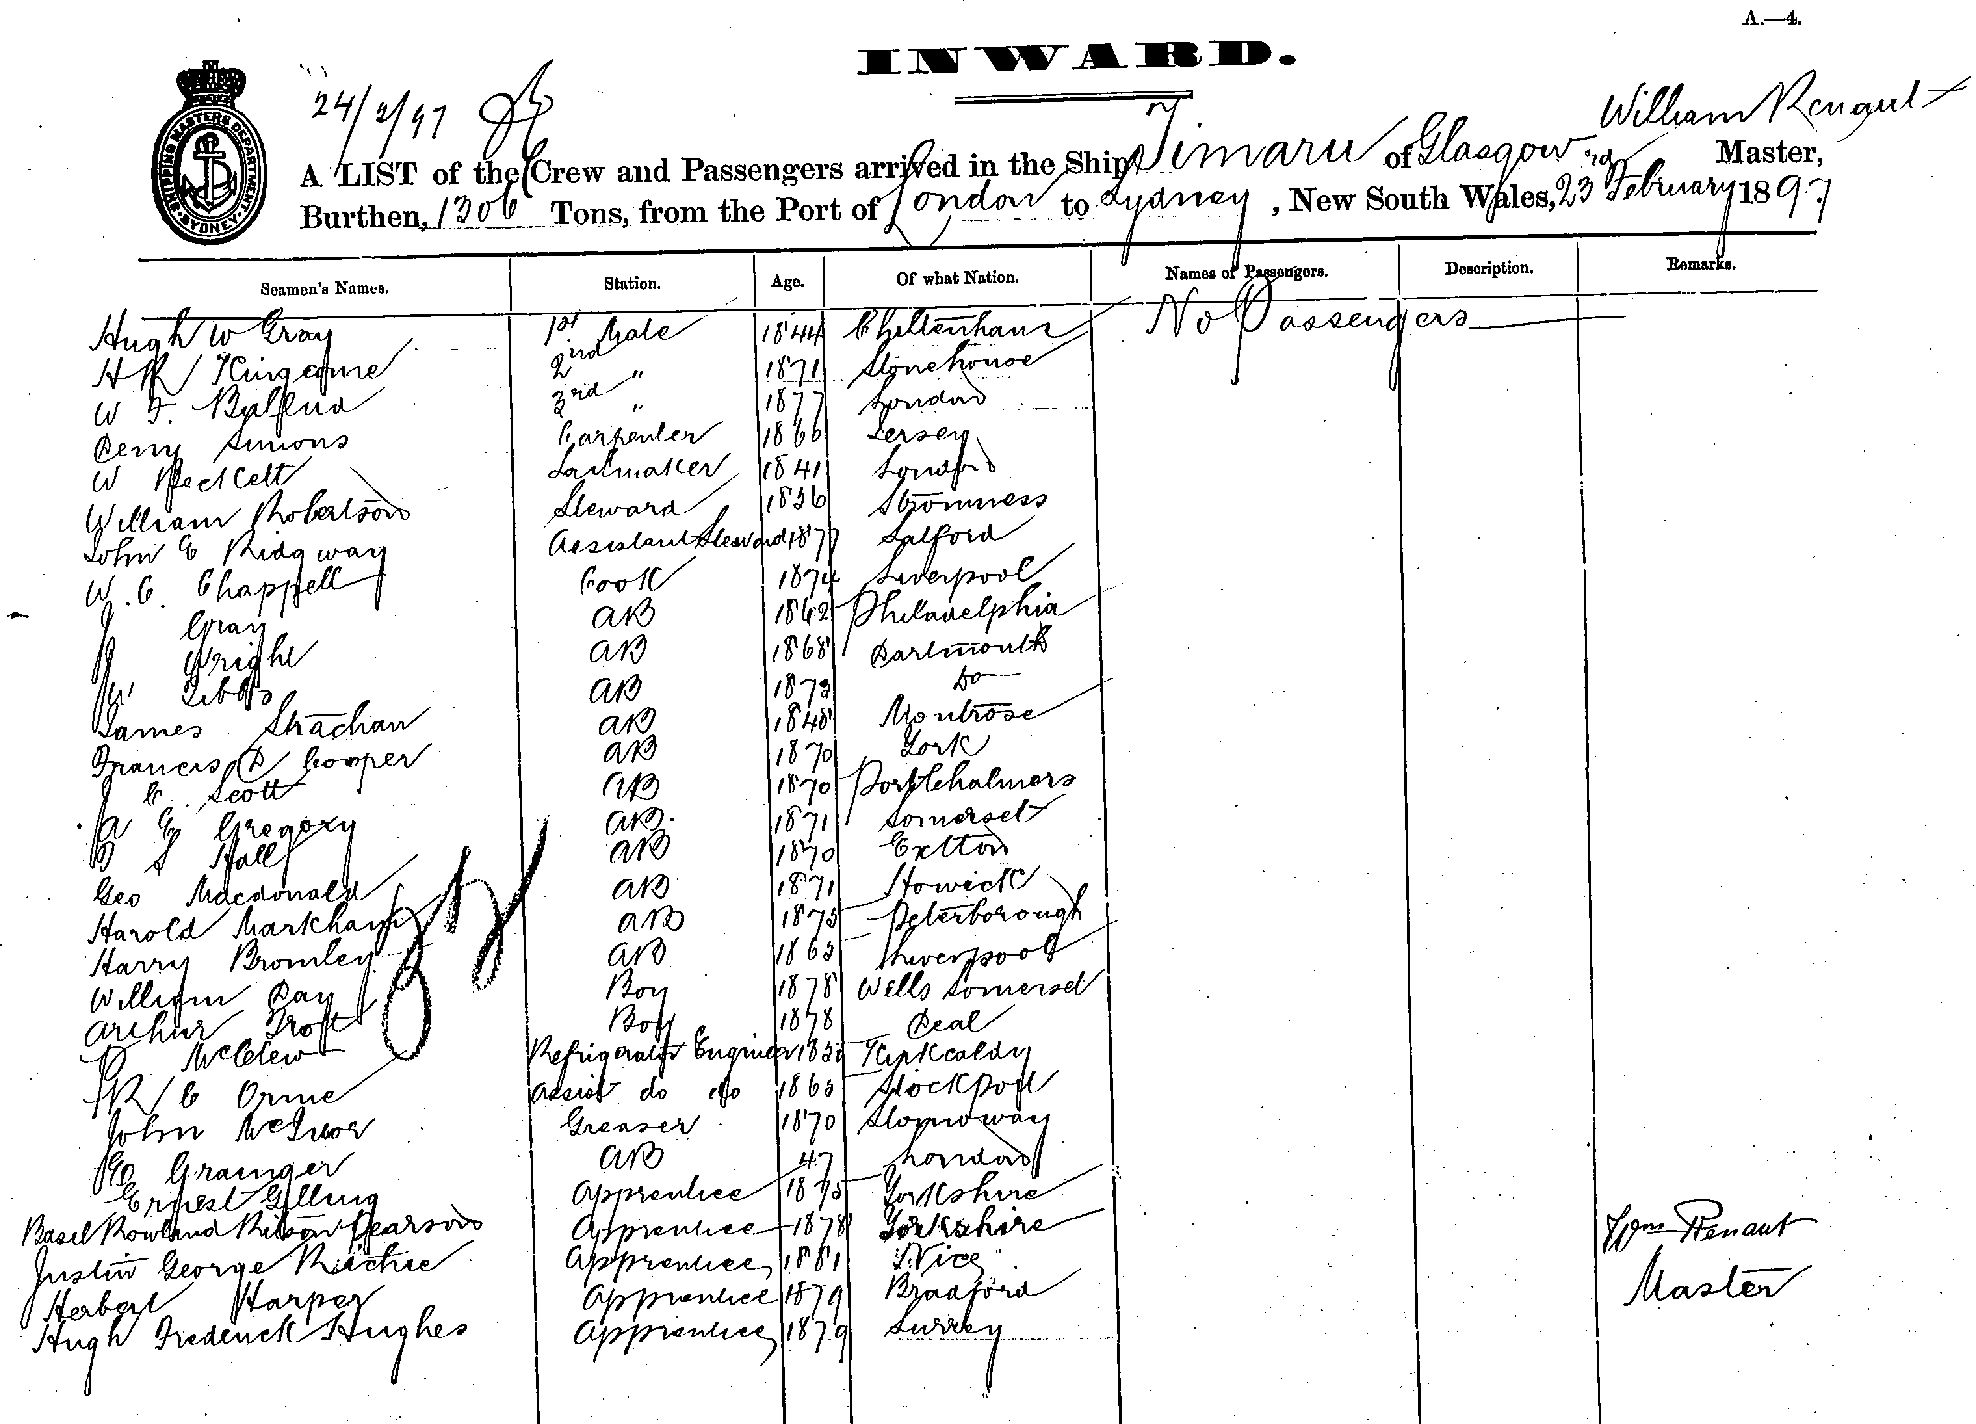 A.—4.
INWARD.
24/2/97
William Renaut
A LIST of the Crew and Passengers arrived in the Ship Timaru of Glasgow Master,
Burthen, 1306 Tons, from the Port of London to Sydney, New South Wales, 23rd February 1897
SHIPPING MASTERS DEPARTMENT SYDNEY
Seamen's Names. Station. Age. Of what Nation. Names of Passengers. Description. Remarks.
Hugh W Gray 1st Mate 1844 Cheltenham No Passengers
H R Kingcome 2nd " 1871 Stonehouse
W F. 3rd " 1877 London
Simons Carpenter 1866 Jersey
W Beckett Sailmaker 1841 London
William Robertson Steward 1836 Stromness
John E Ridgway Assistant Steward 1877 Salford
W. C. Chappell Cook 1874 Liverpool
J Gray AB 1862 Philadelphia
Wright AB 1868 Dartmouth
W Tibbs AB 1873 Do
James Strachan AB 1848 Montrose
Francis D Cooper AB 1870 York
J C. Scott AB 1870 Port Chalmers
A E Gregory AB. 1871 Somerset
D S Hall AB 1870 Exton
Geo Macdonald AB 1871 Howick
Harold Markham AB 1873 Peterborough
Harry Bromley AB 1863 Liverpool
William Day Boy 1878 Wells Somerset
Arthur Trott Boy 1878 Deal
McClew Refrigerator Engineer Kirkcaldy
R C Orme Assist do do 1863 Stockport
John McIvor Greaser 1870 Stornoway
Grainger AB 47 London
Ernest Gilling Apprentice 1875 Yorkshire
Basil Rowland Ritson Pearson Apprentice 1878 Yorkshire Wm Renaut
Justin George Ritchie Apprentice 1881 Nice
Herbert Harper Apprentice 1879 Bradford Master
Hugh Frederick Hughes Apprentice 1879 Surrey